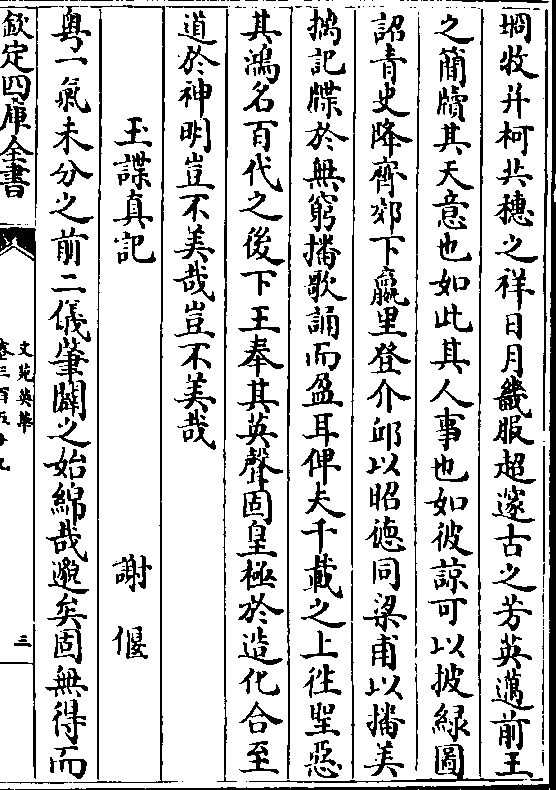 坰牧并柯共穗之祥日月畿服超邃古之芳英邁前王
之簡牘其天意也如此其人事也如彼諒可以披緑圖
詔青史降齊郊下嬴里登介邱以昭徳同梁甫以播美
摛記牒於無窮播歌誦而盈耳俾夫千載之上徃聖恧
其鴻名百代之後下王奉其英聲固皇極於造化合至
道於神明豈不美哉豈不美哉
玉諜真記 謝偃
粤一氣未分之前二儀肇闢之始綿哉邈矣固無得而
欽定四庫全書
文苑英華
卷三百五十九
三